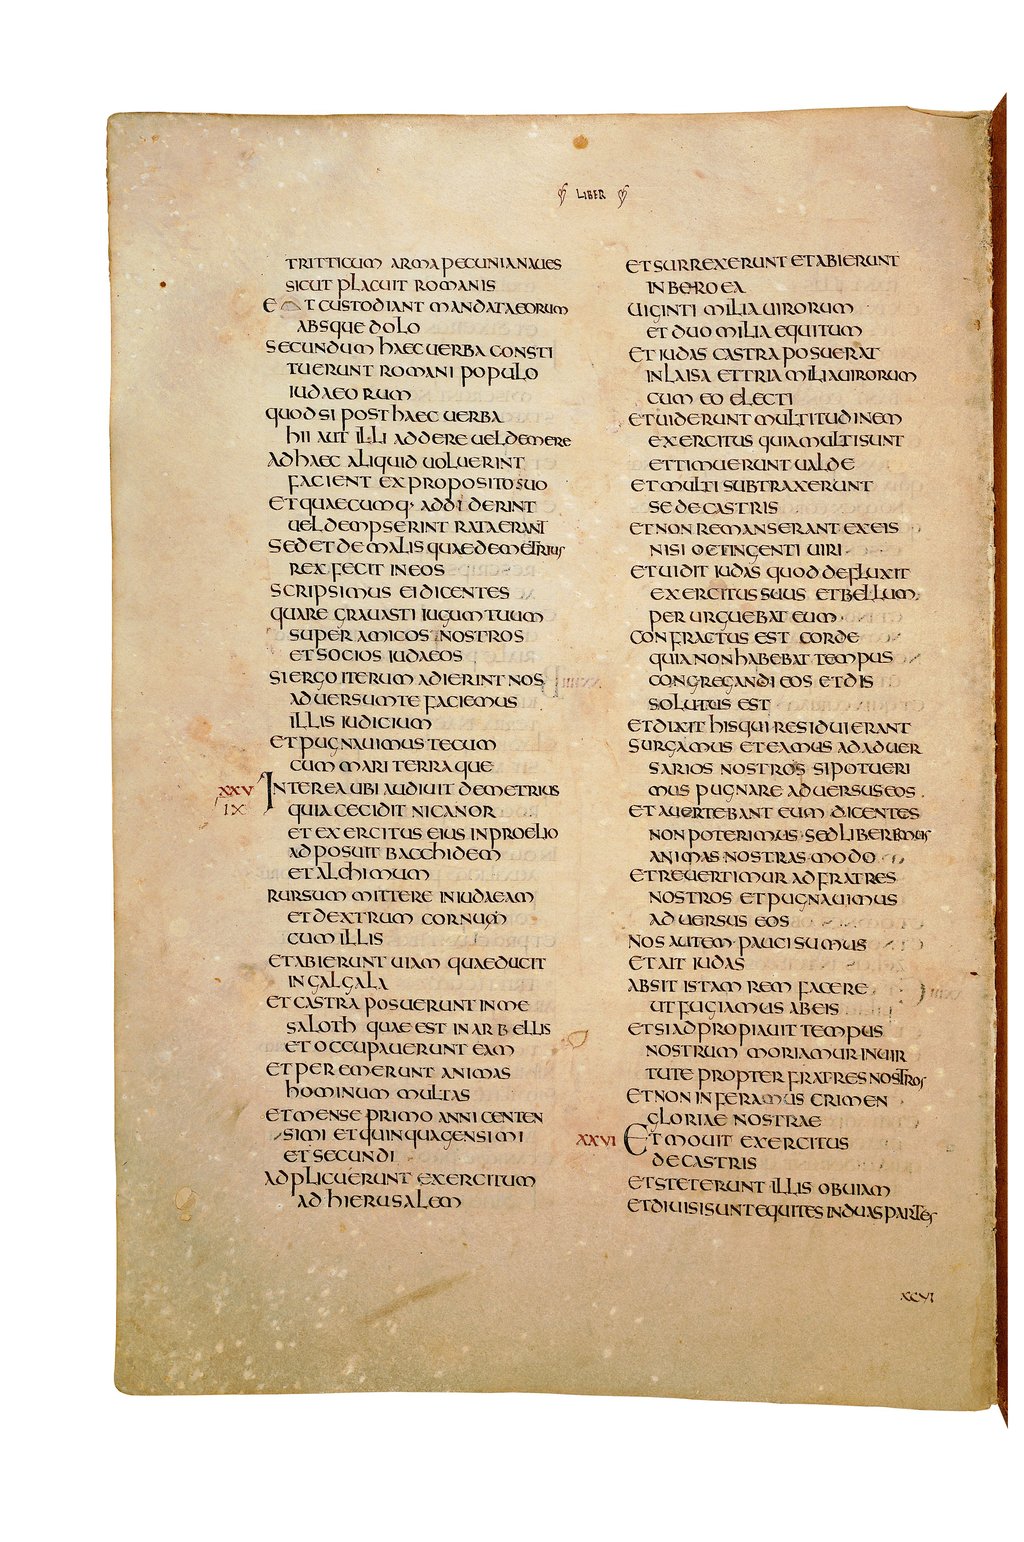 LIBER
TRITTICUM ARMA PECUNIAN NAUES
SICUT PLACUIT ROMANIS
ET CUSTODIANT MANDATA EORUM
ABSQUE DOLO
SECUNDUM HAEC UERBA CONSTI
TUERUNT ROMANI POPULO
IUDAEORUM
QUOD SI POST HAEC UERBA
HII AUT ILLI ADDERE UEL DEMERE
AD HAEC ALIQUID UOLUERINT
FACIENT EX PROPOSITO SUO
ET QUAECUMQ· ADDIDERINT
UEL DEMPSERINT RATA ERANT
SED ET DE MALIS QUAE DEMETRIUS
REX FECIT IN EOS
SCRIPSIMUS EI DICENTES
QUARE GRAUASTI IUGUM TUUM
SUPER AMICOS NOSTROS
ET SOCIOS IUDAEOS
SI ERGO ITERUM ADIERINT NOS
ADUERSUM TE FACIEMUS
ILLIS IUDICIUM
ET PUGNAUIMUS TECUM
CUM MARI TERRAQUE
XXV INTEREA UBI AUDIUIT DEMETRIUS
IX QUIA CECIDIT NICANOR
ET EXERCITUS EIUS IN PROELIO
ADPOSUIT BACCHIDEM
ET ALCHIMUM
RURSUM MITTERE IN IUDAEAM
ET DEXTRUM CORNUM
CUM ILLIS
ET ABIERUNT UIAM QUAE DUCIT
IN GALGALA
ET CASTRA POSUERUNT IN ME
SALOTH QUAE EST IN ARBELLIS
ET OCCUPAUERUNT EAM
ET PEREMERUNT ANIMAS
HOMINUM MULTAS
ET MENSE PRIMO ANNI CENTEN
SIMI ET QUINQUAGENSIMI
ET SECUNDI
ADPLICUERUNT EXERCITUM
AD HIERUSALEM
ET SURREXERUNT ET ABIERUNT
IN BEROEA
UIGINTI MILIA UIRORUM
ET DUO MILIA EQUITUM
ET IUDAS CASTRA POSUERAT
IN LAISA ET TRIA MILIA UIRORUM
CUM EO ELECTI
ET UIDERUNT MULTITUDINEM
EXERCITUS QUIA MULTI SUNT
ET TIMUERUNT UALDE
ET MULTI SUBTRAXERUNT
SE DE CASTRIS
ET NON REMANSERANT EX EIS
NISI OCTINGENTI UIRI
ET UIDIT IUDAS QUOD DEFLUXIT
EXERCITUS SUUS ET BELLUM
PERURGUEBAT EUM
CONFRACTUS EST CORDE
QUIA NON HABEBAT TEMPUS
CONGREGANDI EOS ET DIS
SOLUTUS EST
ET DIXIT HIS QUI RESIDUI ERANT
SURGAMUS ET EAMUS AD ADUER
SARIOS NOSTROS SI POTUERI
MUS PUGNARE ADUERSUS EOS
ET AUERTEBANT EUM DICENTES
NON POTERIMUS· SED LIBEREMUS
ANIMAS NOSTRAS MODO
ET REUERTIMUR AD FRATRES
NOSTROS ET PUGNAUIMUS
ADUERSUS EOS
NOS AUTEM PAUCI SUMUS
ET AIT IUDAS
ABSIT ISTAM REM FACERE
UT FUGIAMUS AB EIS
ET SI ADPROPIAUIT TEMPUS
NOSTRUM MORIAMUR IN UIR
TUTE PROPTER FRATRES NOSTROS
ET NON INFERAMUS CRIMEN
GLORIAE NOSTRAE
XXVI ET MOUIT EXERCITUS
DE CASTRIS
ET STETERUNT ILLIS OBUIAM
ET DIUISI SUNT EQUITES IN DUAS PARTES
XCVI